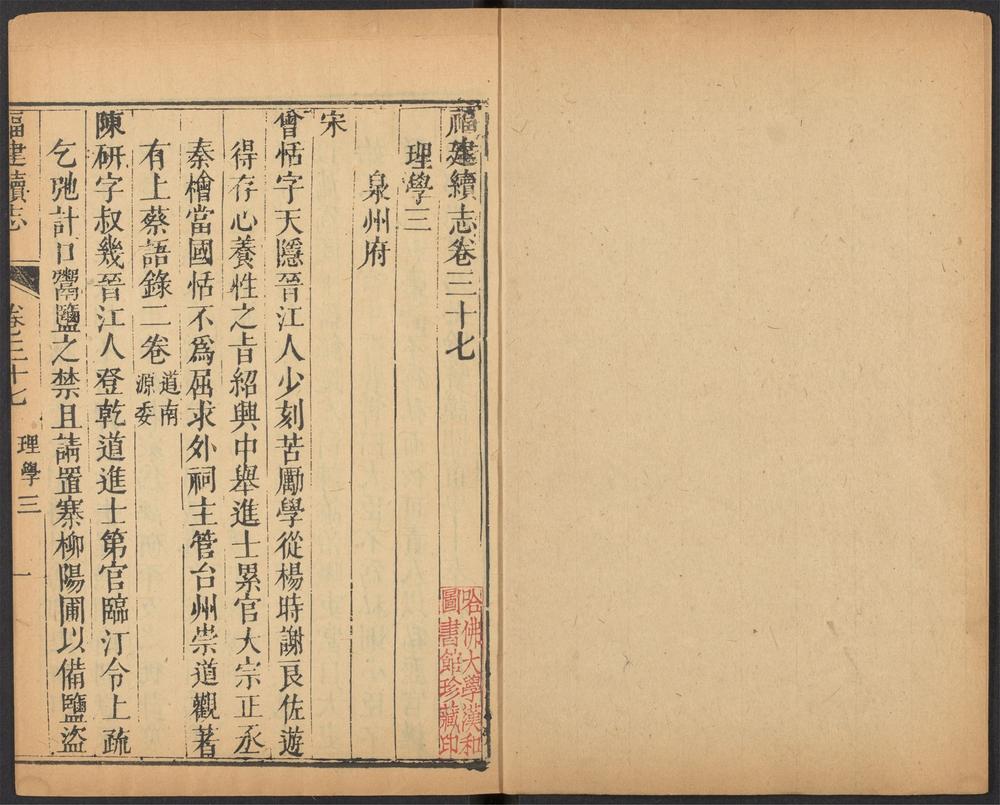 福建續志卷三十七
理學三
泉州府
宋
曾恬字天隱晉江人少刻苦勵學從楊時謝良佐遊
得存心養性之旨紹興中舉進士累官大宗正丞
秦檜當國恬不爲屈求外祠主管台州崇道觀著
有上蔡語錄二卷道南
源委
陳研字叔幾晉江人登乾道進士第官臨汀令上疏
乞弛計口鬻鹽之禁且請置寨柳陽圃以備鹽盜
福建續志 卷三十七 理學三 一
哈佛大學漢和
圖書館珍藏印